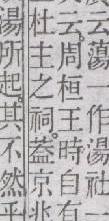 云蕩一作湯社
云周桓王時自有
杜主之祠蓋京兆
湯所起其不然乎